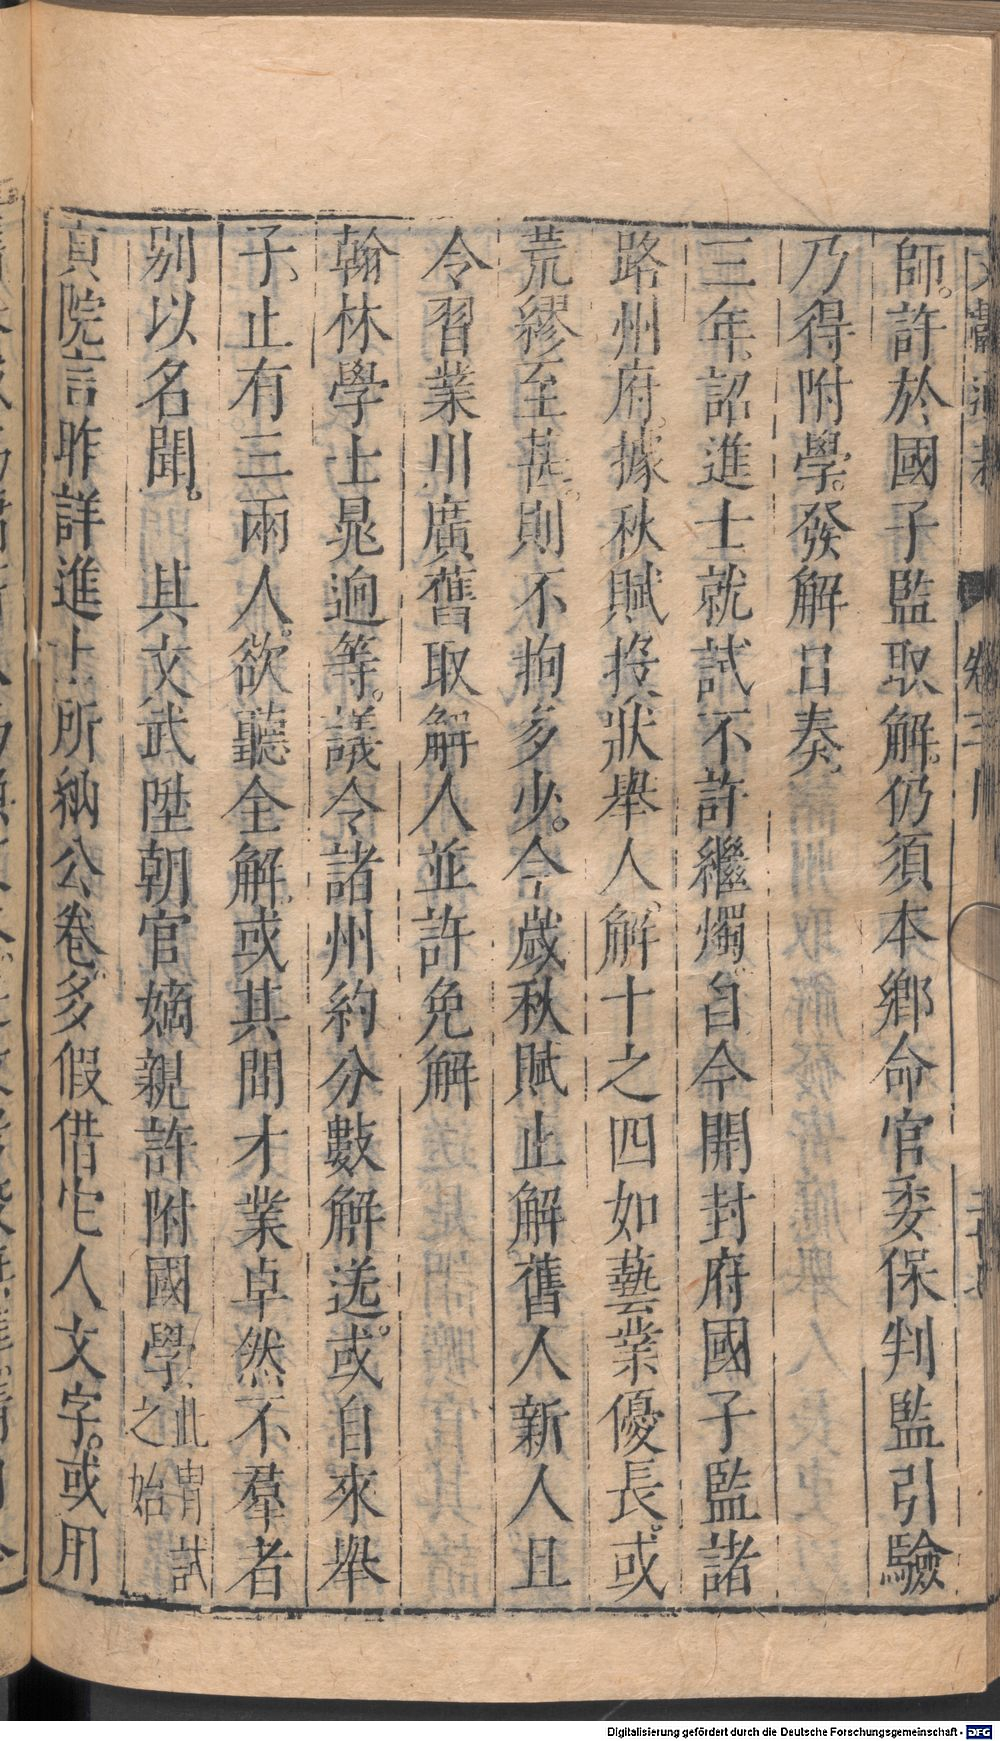 師。許於國子監取解。仍須本鄉命官委保判監引驗
乃得附學。發解日奏。
三年。詔進士就試不許繼燭。自今開封府國子監諸
路州府。據秋賦投狀舉人。解十之四如藝業優長。或
荒繆至甚。則不拘多少。今歲秋賦止解舊人新人且
令習業川廣舊取解人並許免解
翰林學士晁逈等。議令諸州約分數解送。或自來舉
子。止有三兩人。欲聽全解。或其間才業卓然不羣者
别以名聞。　其文武陞朝官嫡親許附國學。此冑試之始
貢院言昨詳進士所納公卷。多假借它人文字。或用
Digitalisierung gefördert durch die Deutsche Forschungsgemeinschaft - DFG